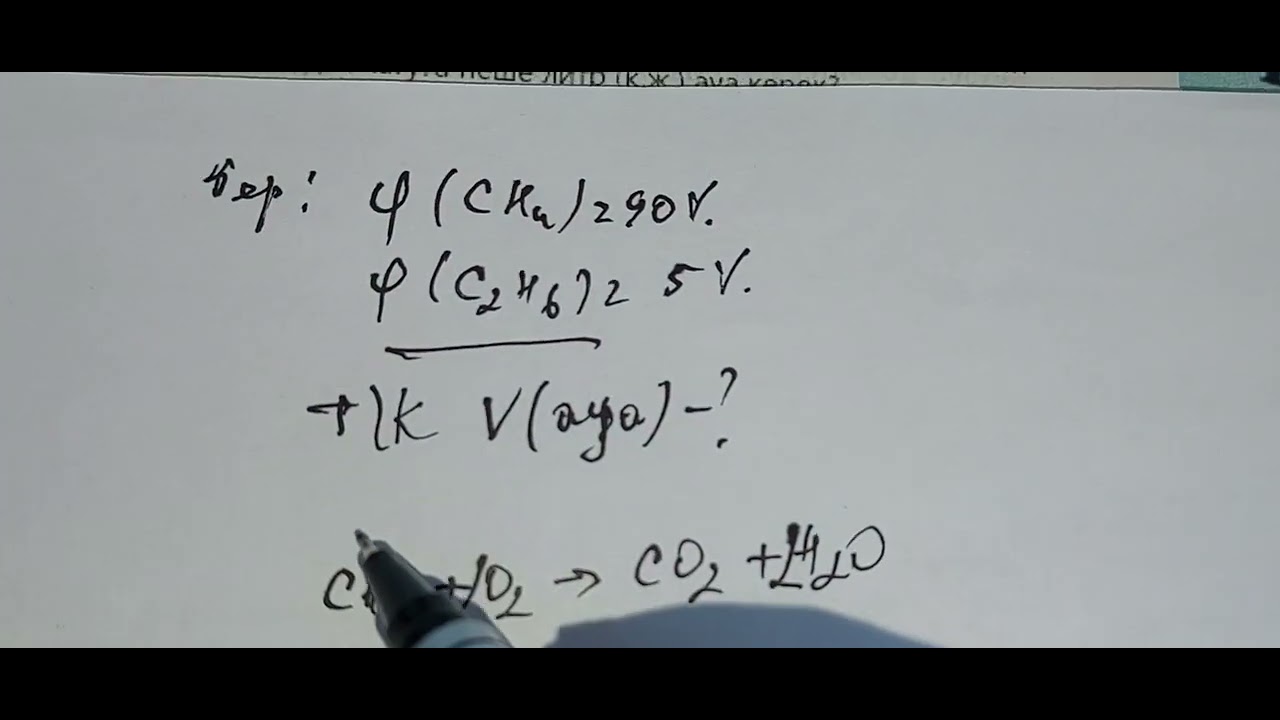 неше литр (қ.ж.) ауа керек?
Бер: φ(CH₄)=90%.
φ(C₂H₆)= 5%.
т/к V(ауа)-?
+ O₂ → CO₂ + 2H₂O